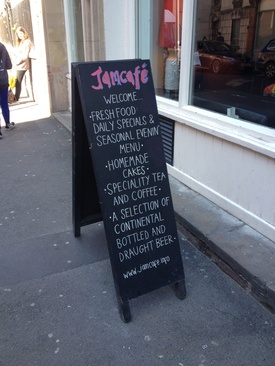 Jamcafé
WELCOME...
•FRESH FOOD
DAILY SPECIALS &
SEASONAL EVENIN
MENU•
•HOMEMADE
CAKES•
•SPECIALITY TEA
AND COFFEE•
•A SELECTION OF
CONTINENTAL
BOTTLED AND
DRAUGHT BEER•